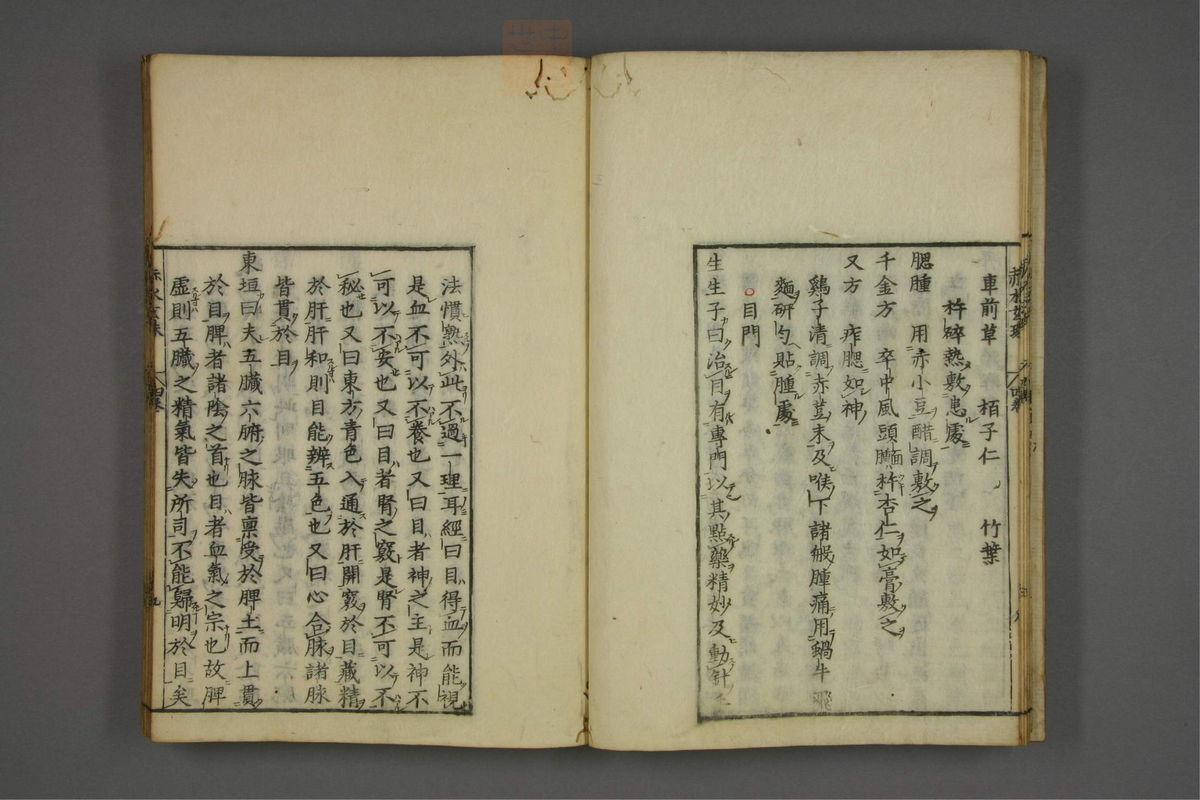 車前草　栢子仁　竹葉
杵碎熱敷患處
腮腫　用赤小豆醋調敷之
千金方　卒中風頭面腫杵杏仁如膏敷之
又方　痄腮如神
鷄子清調赤荳末及喉下諸般腫痛用蝸牛飛
麵研勻貼腫處
目門
生生子曰治目有專門以其點藥精妙及動針手
法慣熟外此不過一理耳經曰目得血而能視
是血不可以不養也又曰目者神之主是神不
可以不安也又曰目者腎之竅是腎不可以不
秘也又曰東方青色入通於肝開竅於目藏精
於肝肝和則目能辨五色也又曰心合脉諸脉
皆貫於目
東垣曰夫五臟六腑之脉皆禀受於脾土而上貫
於目脾者諸陰之首也目者血氣之宗也故脾
虛則五臟之精氣皆失所司不能歸明於目矣